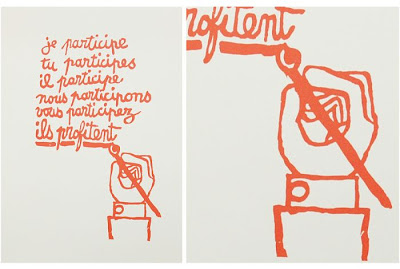 je participe
tu participes
il participe
nous participons
vous participez
ils profitent
rofitent